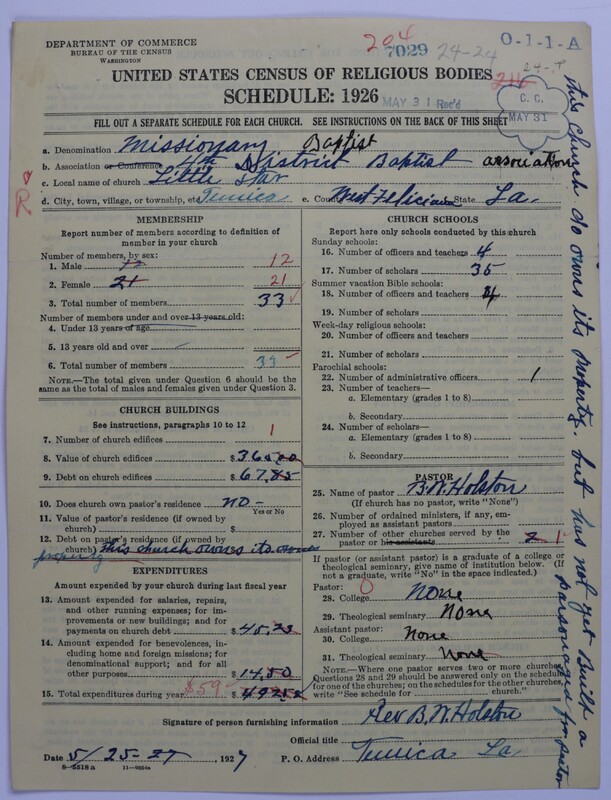 DEPARTMENT OF COMMERCE
BUREAU OF THE CENSUS
WASHINGTON
204
7029 24-24
O-1-1-A
UNITED STATES CENSUS OF RELIGIOUS BODIES
SCHEDULE: 1926
MAY 31 Rec'd
C. C.
MAY 31
FILL OUT A SEPARATE SCHEDULE FOR EACH CHURCH. SEE INSTRUCTIONS ON THE BACK OF THIS SHEET
a. Denomination Missionary Baptist
b. Association or Conference 4th District Baptist association
c. Local name of church Little Star
d. City, town, village, or township, etc. Tunica e. County West Feliciana State La.
R
MEMBERSHIP
Report number of members according to definition of
member in your church
Number of members, by sex:
1. Male 12 12
2. Female 21 21
3. Total number of members 33
Number of members under and over 13 years old:
4. Under 13 years of age
5. 13 years old and over
6. Total number of members 33
NOTE.—The total given under Question 6 should be
same as the total of males and females given under Question 3.
CHURCH BUILDINGS
See instructions, paragraphs 10 to 12
7. Number of church edifices 1
8. Value of church edifices $
9. Debt on church edifices $ 67.85
10. Does church own pastor's residence NO -
Yes or No
11. Value of pastor's residence (if owned by
church) $
12. Debt on pastor's residence (if owned by
church) this church owns its own
property
EXPENDITURES
Amount expended by your church during last fiscal year
13. Amount expended for salaries, repairs,
and other running expenses; for im-
provements or new buildings; and for
payments on church debt $ 45.23
14. Amount expended for benevolences,
including home and foreign missions; for
denominational support; and for all
other purposes $ 14.50
15. Total expenditures during year $59. $
CHURCH SCHOOLS
Report here only schools conducted by this church
Sunday schools:
16. Number of officers and teachers 4
17. Number of scholars 35
Summer vacation Bible schools:
18. Number of officers and teachers 4
19. Number of scholars
Week-day religious schools:
20. Number of officers and teachers
21. Number of scholars
Parochial schools:
22. Number of administrative officers 1
23. Number of teachers—
a. Elementary (grades 1 to 8)
b. Secondary
24. Number of scholars—
a. Elementary (grades 1 to 8)
b. Secondary
PASTOR
25. Name of pastor B. N. Holston
(If church has no pastor, write "None")
26. Number of ordained ministers, if any, em-
ployed as assistant pastors
27. Number of other churches served by the
pastor or his assistants 2 1
If pastor (or assistant pastor) is a graduate of a college or
theological seminary, give name of institution below. (If
not a graduate, write "No" in the space indicated.)
Pastor: 0
28. College None
29. Theological seminary None
Assistant pastor:
30. College None
31. Theological seminary None
NOTE.—Where one pastor serves two or more churches,
Questions 28 and 29 should be answered only on the schedule
for one of the churches; on the schedules for the other churches,
write "See schedule for church."
Signature of person furnishing information Rev B. N. Holston
Official title
Date 5/25-27, 1927 P. O. Address Tunica La
8-5518 a
this church do owns its property. but has not yet Built a
parsonage for pastor